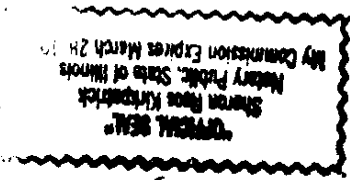 "OFFICIAL SEAL"
Sharon Kirkpatrick
Notary Public, State of Illinois
My Commission Expires March 28